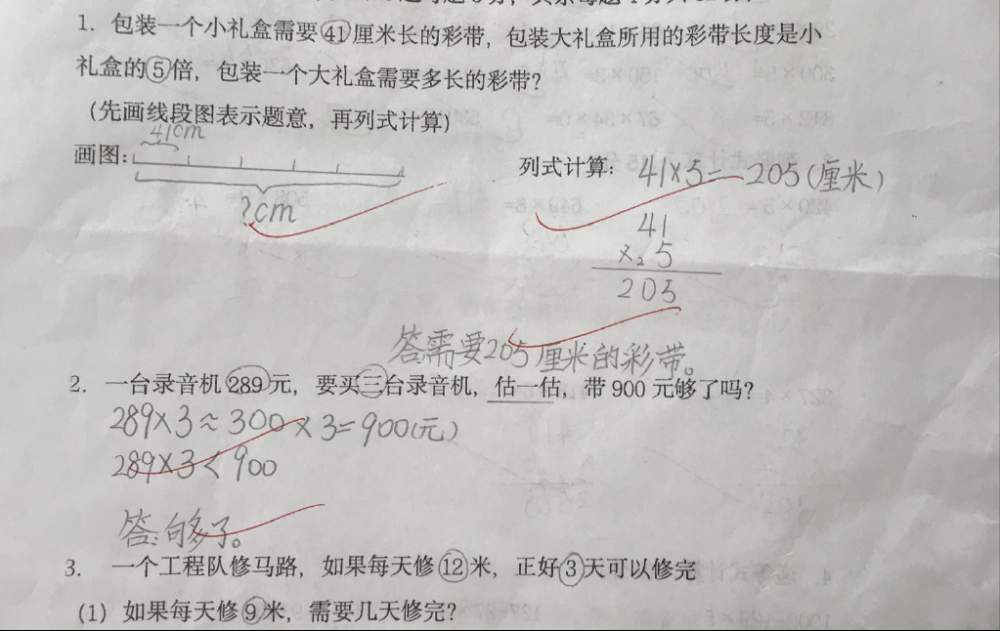 1. 包装一个小礼盒需要41厘米长的彩带，包装大礼盒所用的彩带长度是小
礼盒的5倍，包装一个大礼盒需要多长的彩带？
(先画线段图表示题意，再列式计算)
41cm
画图：
?cm
列式计算：41×5=205(厘米)
41
×2 5
205
答需要205厘米的彩带。
2. 一台录音机289元，要买三台录音机，估一估，带900元够了吗？
289×3≈300×3=900(元)
289×3<900
答：够了。
3. 一个工程队修马路，如果每天修12米，正好3天可以修完
(1) 如果每天修9米，需要几天修完？